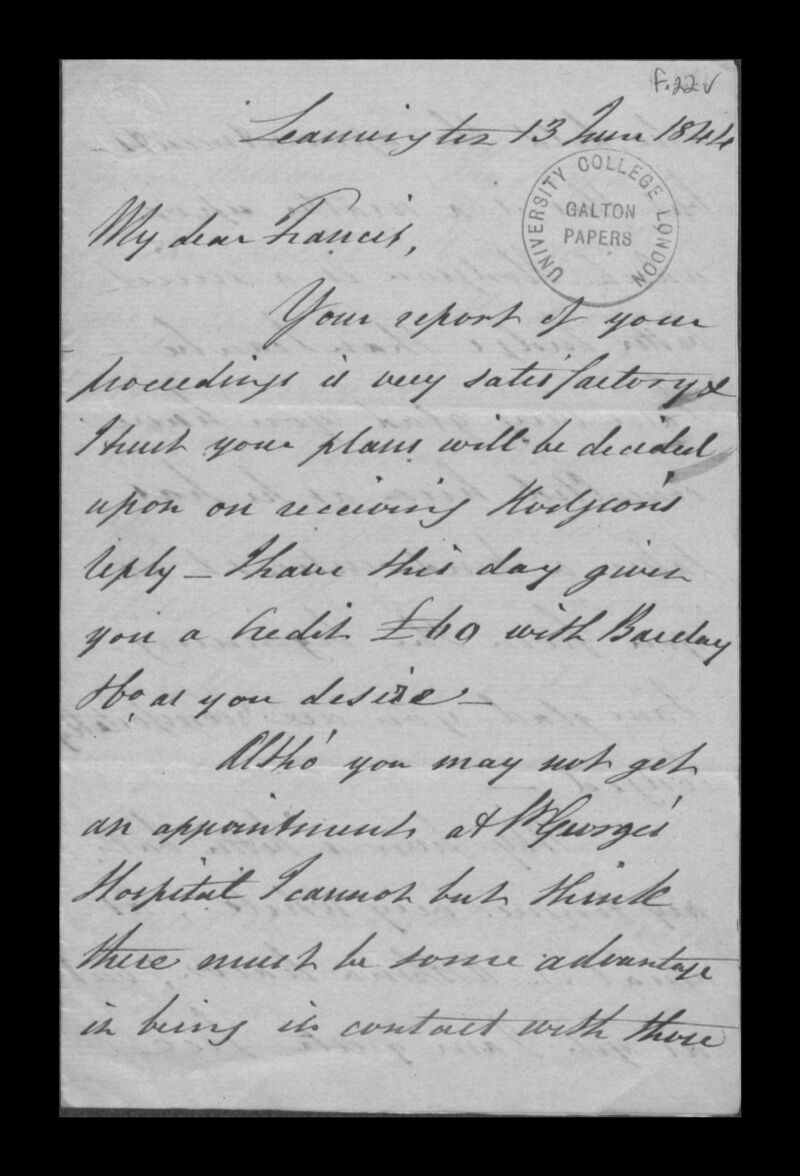 f.22v
Leamington 13 June 1844
UNIVERSITY COLLEGE LONDON
GALTON
PAPERS
My dear Francis,
Your report of your
proceedings is very satisfactory &
I trust your plans will be decided
upon on receiving Hodgson's
reply – I have this day given
you a Credit £60 with Barclay
& Co as you desire –
Altho' you may not get
an appointment at St George's
Hospital I cannot but think
there must be some advantage
in being in contact with those